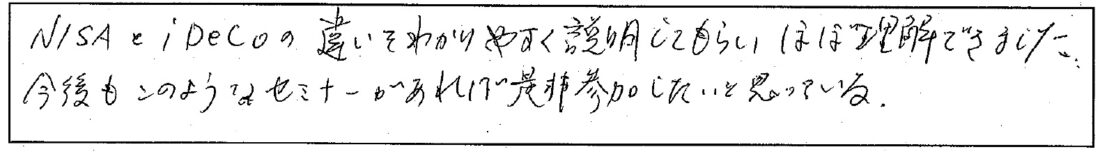 NISAとiDeCoの違いをわかりやすく説明してもらい、ほぼ理解できました。
今後もこのようなセミナーがあれば是非参加したいと思っている。